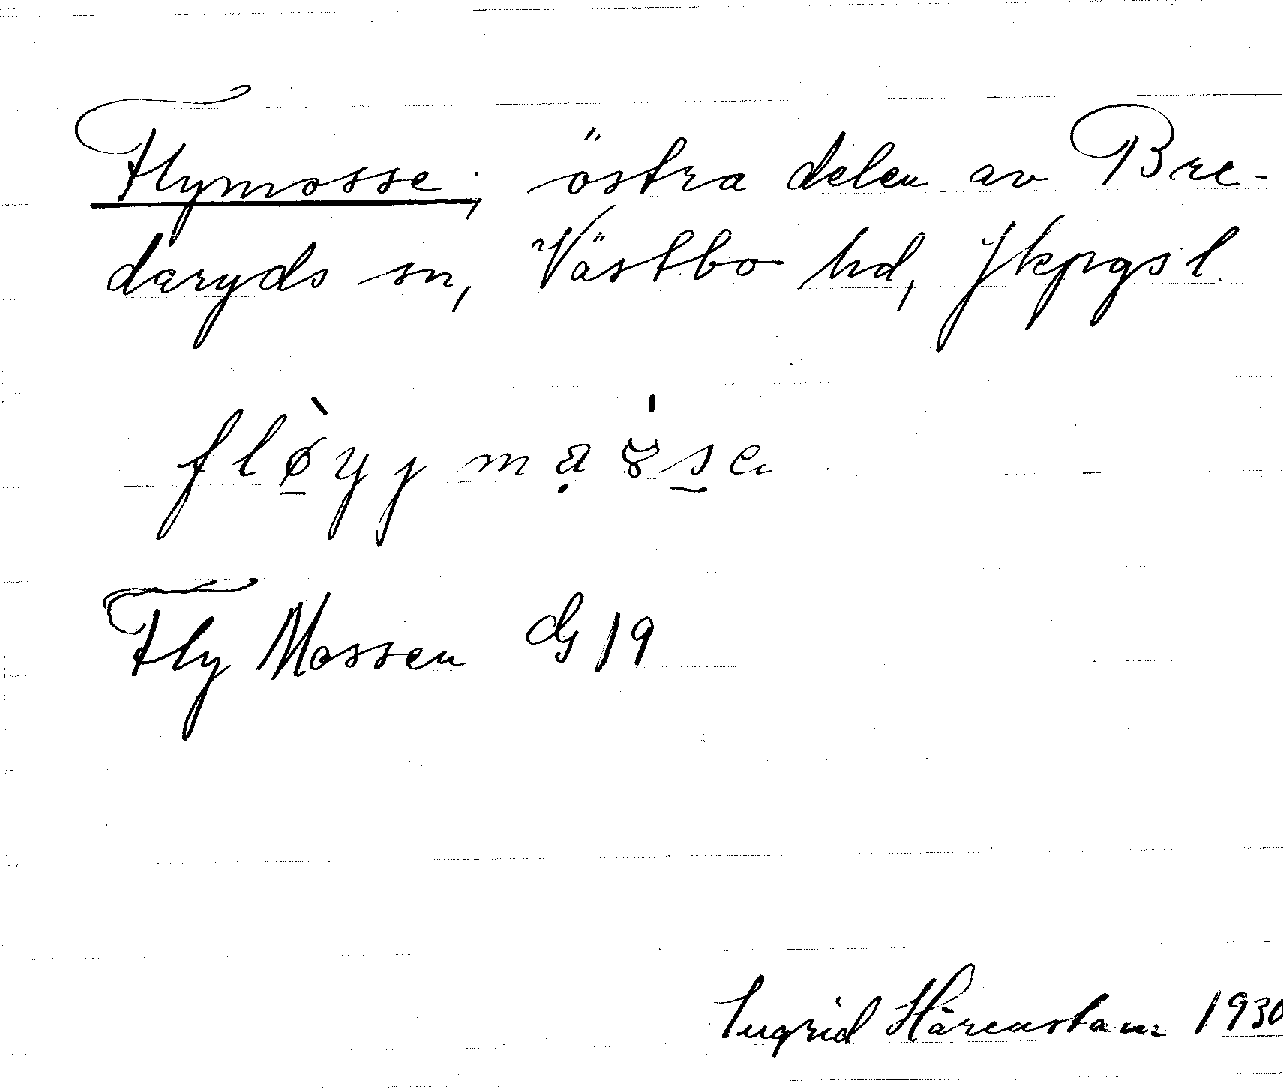 Flymosse; östra delen av Bre-
daryds sn, Västbo hd, Jkpgs l.
Fly Mossen G 19
Ingrid Härenstam 1930